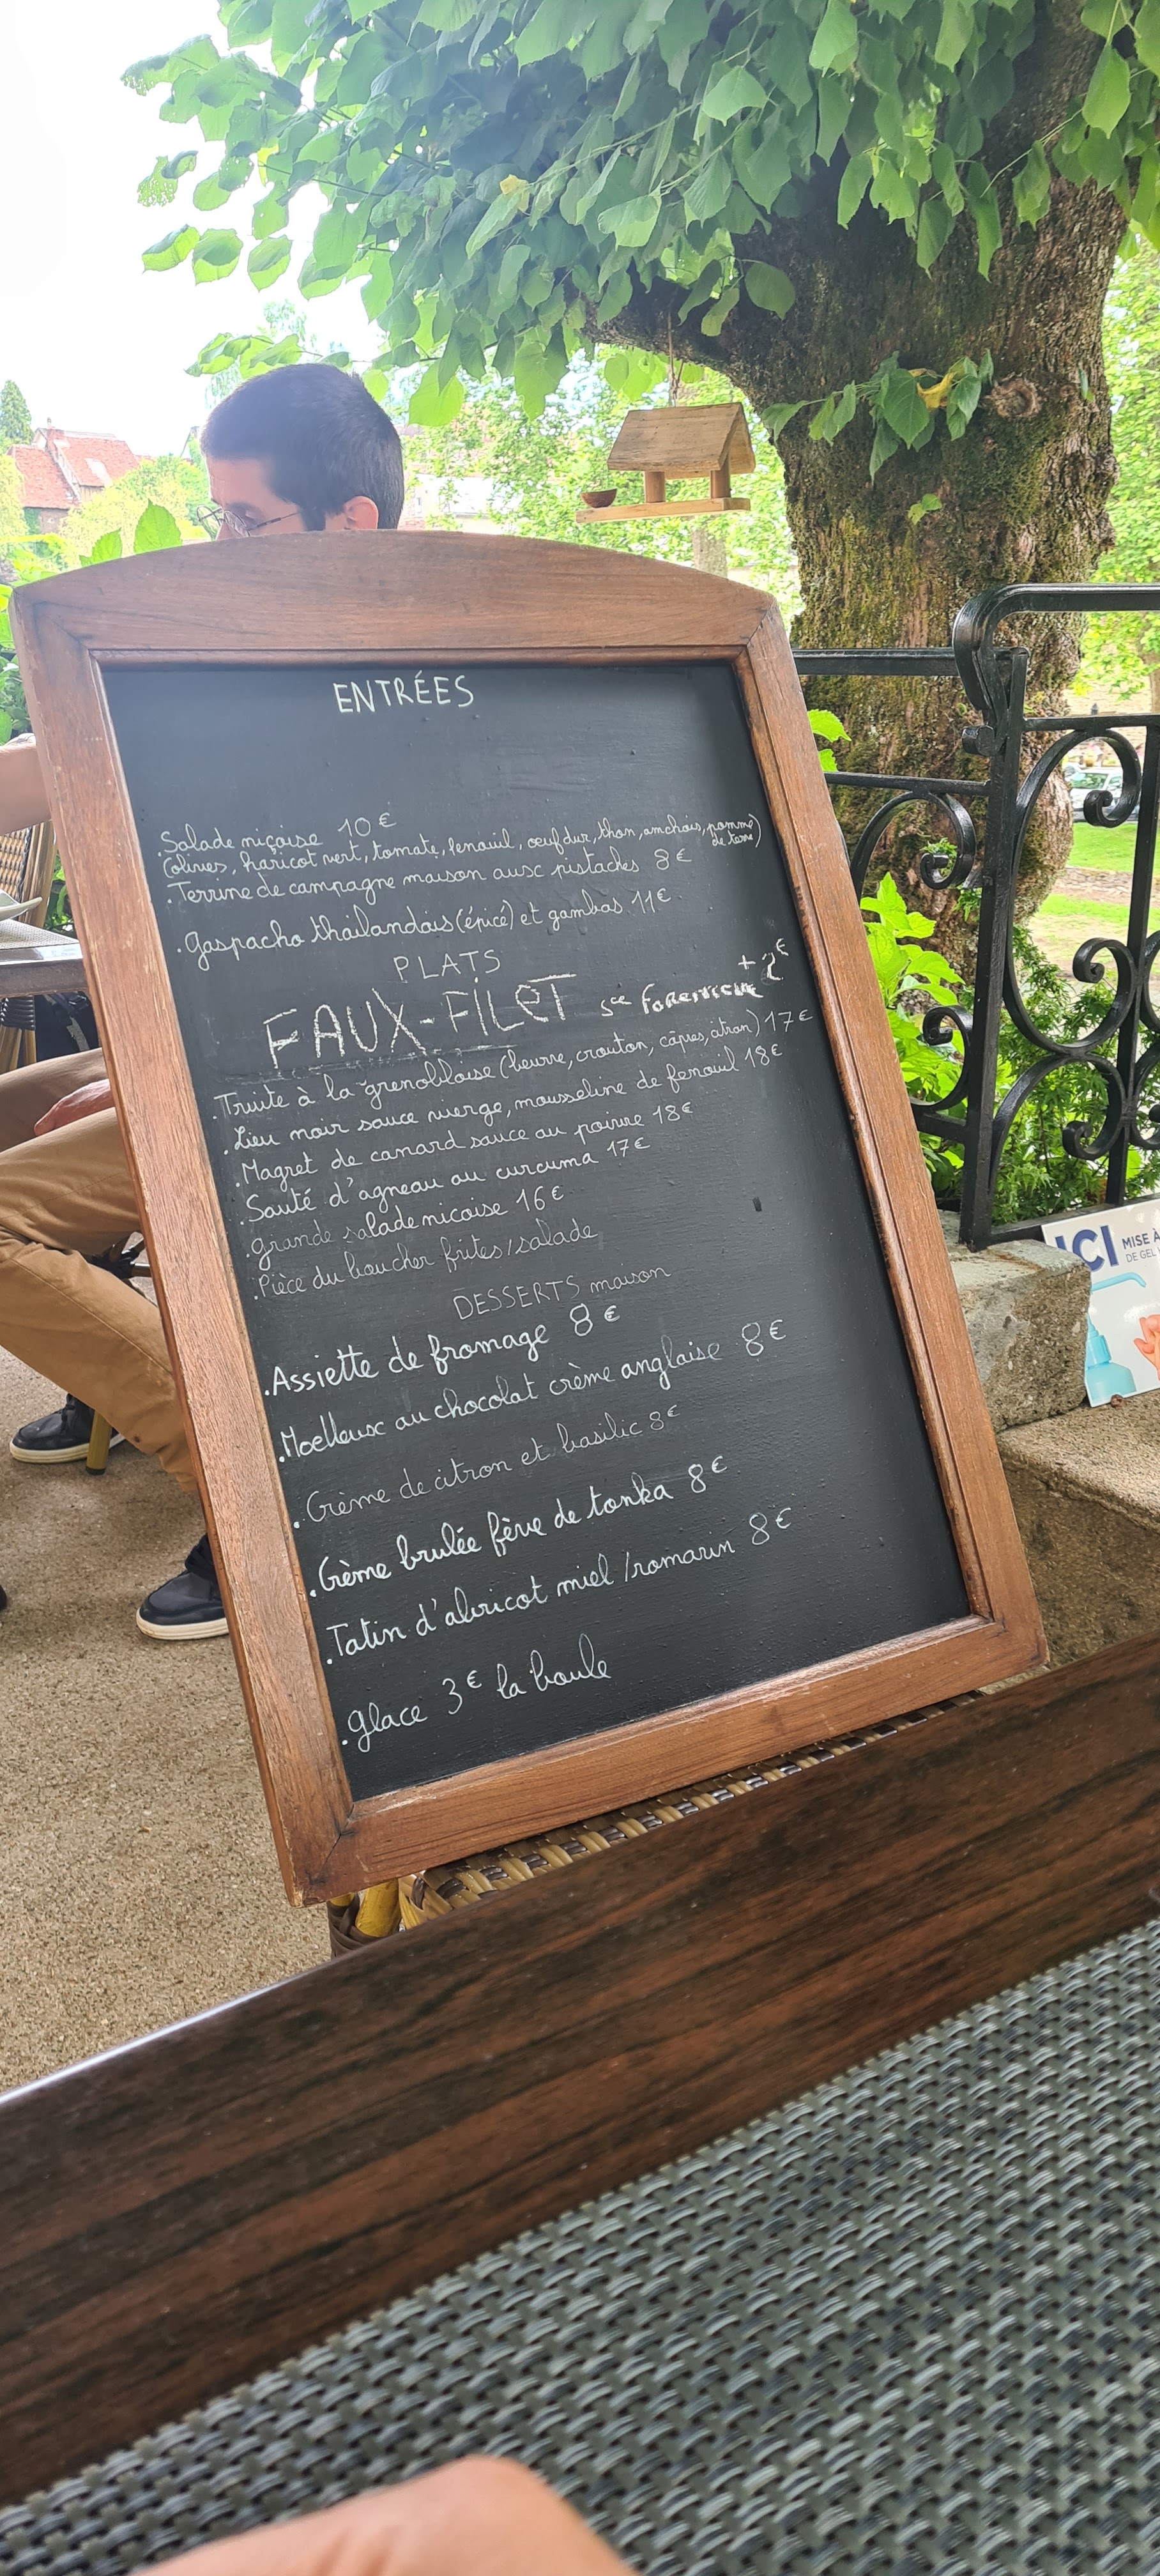 ENTRÉES
.Salade niçoise 10€
(olives, haricot vert, tomate, fenouil, œuf dur, thon, anchois, pomme de terre)
.Terrine de campagne maison aux pistaches 8€
.Gaspacho thaïlandais (épicé) et gambas 11€
PLATS
FAUX-FILET sce Forestière +2€
.Truite à la grenobloise (beurre, crouton, câpres, citron) 17€
.Lieu noir sauce vierge, mousseline de fenouil 18€
.Magret de canard sauce au poivre 18€
.Sauté d'agneau au curcuma 17€
.Grande salade nicoise 16€
.Pièce du boucher frites/salade
DESSERTS maison
.Assiette de fromage 8€
.Moelleux au chocolat crème anglaise 8€
.Crème de citron et basilic 8€
.Crème brulée fève de tonka 8€
.Tatin d'abricot miel /romarin 8€
.Glace 3€ la boule
ICI MISE À
DE GEL